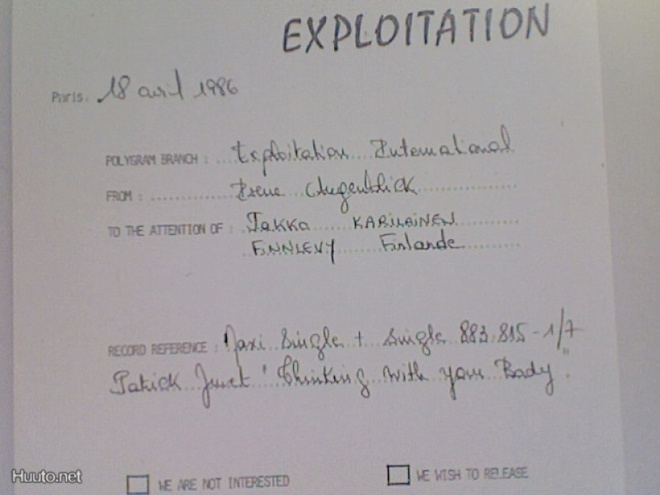 EXPLOITATION
Paris, 18 avril 1986
POLYGRAM BRANCH : Exploitation International
FROM : Irene Augenblick
TO THE ATTENTION OF : Jakko KARILAINEN
FINNLEVY Finlande
RECORD REFERENCE : Maxi Single + Single 883.815-1/7
Patrick Juvet "Thinking with your Body".
WE ARE NOT INTERESTED
WE WISH TO RELEASE
Huuto.net